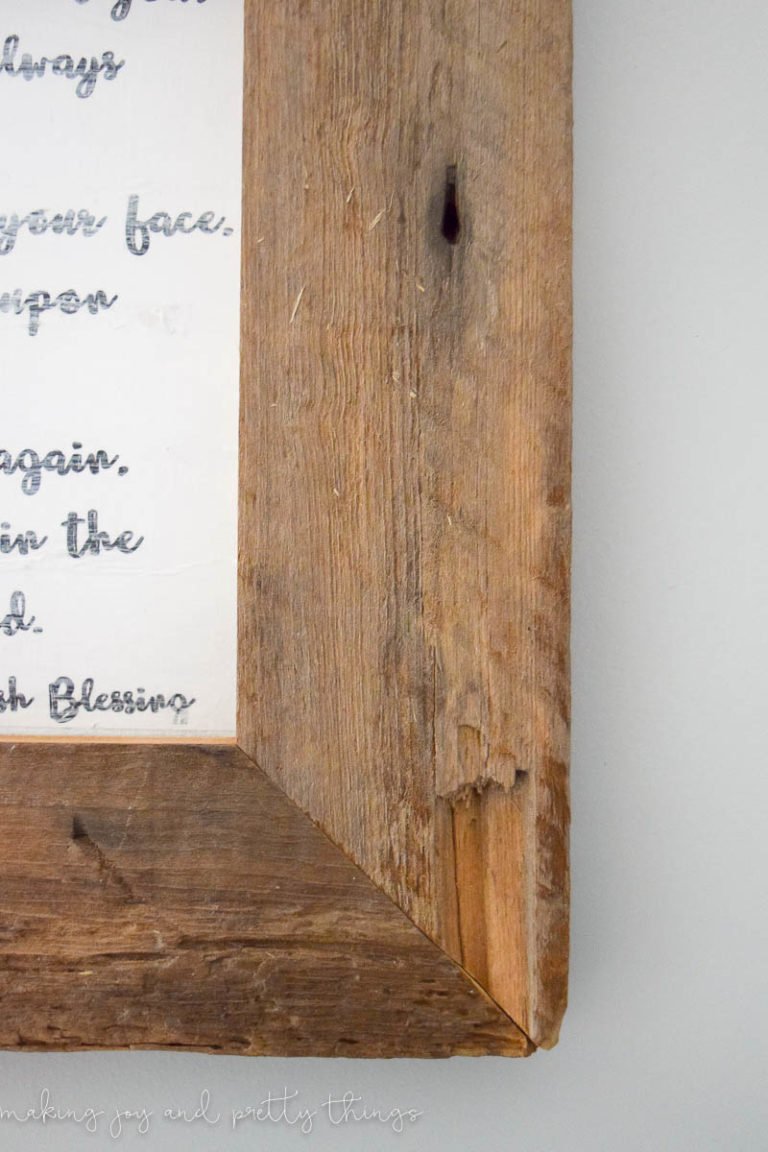 always
your face.
upon
again.
in the
d.
sh Blessing
making joy and pretty things